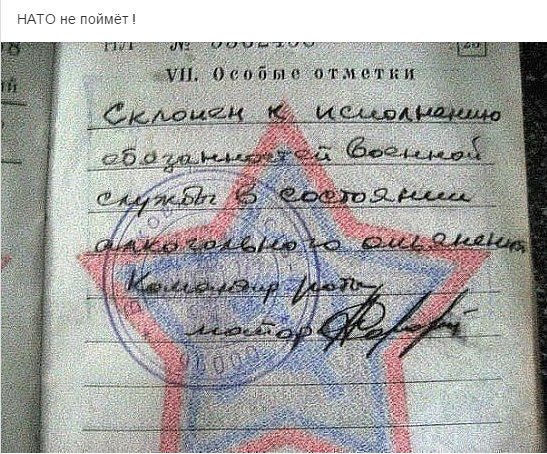 НАТО не поймёт !
НП №
VII. Особые отметки
Склонен к исполнению
обязанностей военной
службы в состоянии
алкогольного опьянения
Командир роты
майор